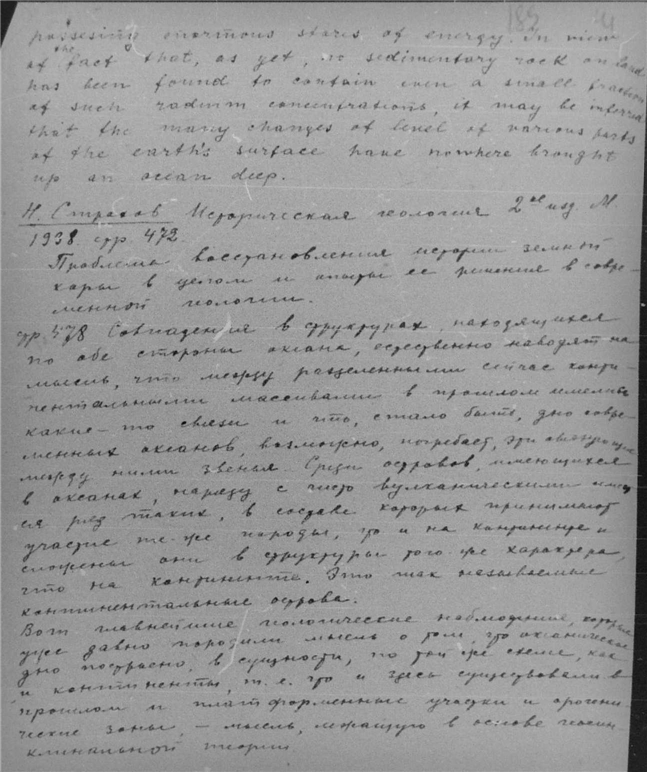 183 4
possesing enormous stores of energy. In view
of the fact that, as yet, no sedimentary rock on land
has been found to contain even a small fraction
of such radium concentrations, it may be inferred
that the many changes of level of various parts
of the earth's surface have nowhere brought
up an ocean deep.
Н. Страхов Историческая геология 2ое изд. М.
1938 стр. 472.
Проблема восстановления истории земной
коры в целом и опыты ее решения в совре-
менной геологии.
стр 478 Совпадения в структурах, находящихся
по обе стороны океана, естественно наводят на
мысль, что между разделенными сейчас конти-
нентальными массивами в прошлом имелись
какие-то связи и что, стало быть, дно совре-
менных океанов, возможно, погребает эти
между ними звенья. Среди островов, имеющихся
в океанах, наряду с чисто вулканическими имеет
ся ряд таких, в составе которых принимают
участие те же породы, что и на континенте и
сложены они в структуры того же характера,
что на континенте. Это так называемые
континентальные острова.
Вот главнейшие геологические наблюдения, которые
уже давно породили мысль о том, что океаническое
дно построено, в сущности, по той же схеме, как
и континенты, т.е. что и здесь существовали в
прошлом и платформенные участки и орогени-
ческие зоны, – мысль, лежащую в основе геосин-
клинальной теории